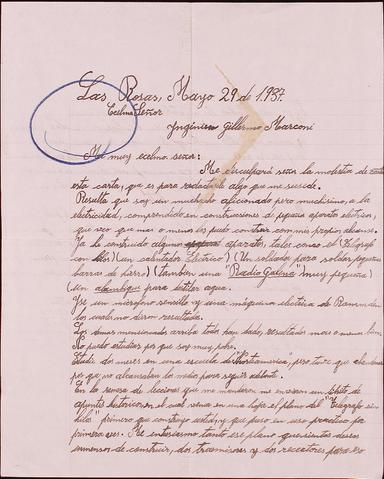 Las Rosas, Mayo 29 de 1.937.
Exelmo Señor
Ingeniero Gillermo Marconi
Mi muy exelmo señor:
Me disculpará señor la molestia de
esta carta, que es para redactarle algo que me sucede.
Resulta que soy un muchacho aficionado pero muchísimo, a la
electricidad, comprendo en construcciones de pequeños aparatos eléctricos,
que veo que mas o menos los puedo construir con mis propios alcanses.
Ya he construido algunos aparatos, tales como el Telégrafo
con hilos) (un calentador Eléctrico) (Un soldador para soldar pequeñas
barras de hierro) (tambien una "Radio Galena" muy pequeña)
(un alambique para destilar agua.
Hise un microfono sencillo y una máquina electrica de Ramsden
los cuales no dieron resultado.
Los demas mencionados arriba todos han dado, resultados mas o menos buenos
No puedo estudiar por que soy muy pobre.
Estudié dos meses en una escuela de
por que no alcansaban los medios para seguir adelante.
En la remesa de lecciones que me mandaron me enviaron un librito de
apuntes historicos, en el cual venia en una hoja el plano del "Telégrafo sin
hilos" primero que construyó usted, y que puso en uso practico por
primera ves. Me entusiasmo tanto ese plano que
inmensos de construir, dos trasmisores y dos receptores para eso